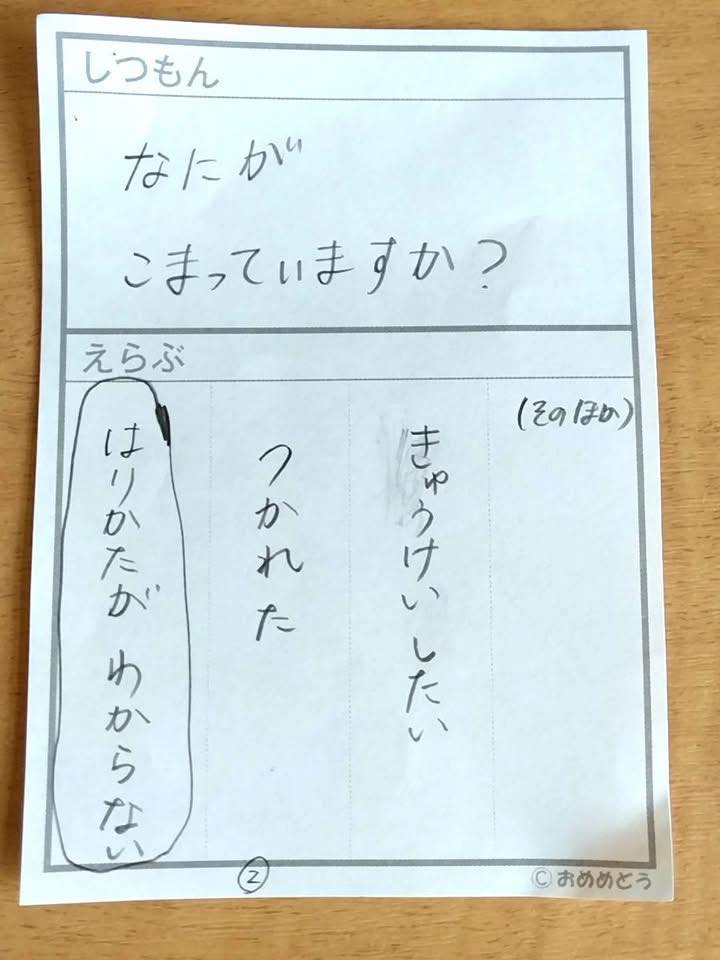 しつもん
なにが
こまっていますか?
えらぶ
(そのほか)
きゅうけいしたい
つかれた
はりかたが わからない
②
©おめめどう